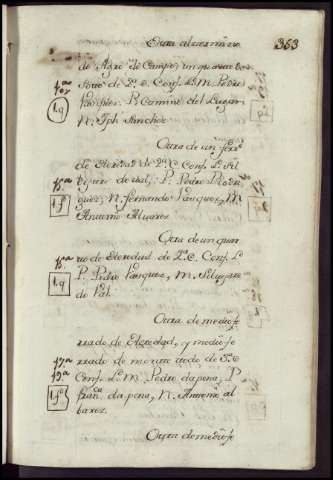 363
de Agro de Campo, un quarto
de 2ª C. Confª L. M. Pedro
Vazquez, P. Camino del Lugar
N. Jph Sanchez
1.q
Otra de un ferrº
de Heredad de 2ª C. Confª L.
de Val, P. Pedro
N. fernando Vazquez, M.
Antonio Alvarez
1.fº
Otra de un quar
to de Heredad de 2ª C. Confª L.
P. Pedro Vazquez, M.
de Val.
1.q
Otra de medio fe
rrado de Heredad, y medio fe
rrado de monte todo de 3ª C
Confª L. M. Pedro da pena, P
franco da pena, N. Antonio al
barez.
1.fº
Otra de medio fe